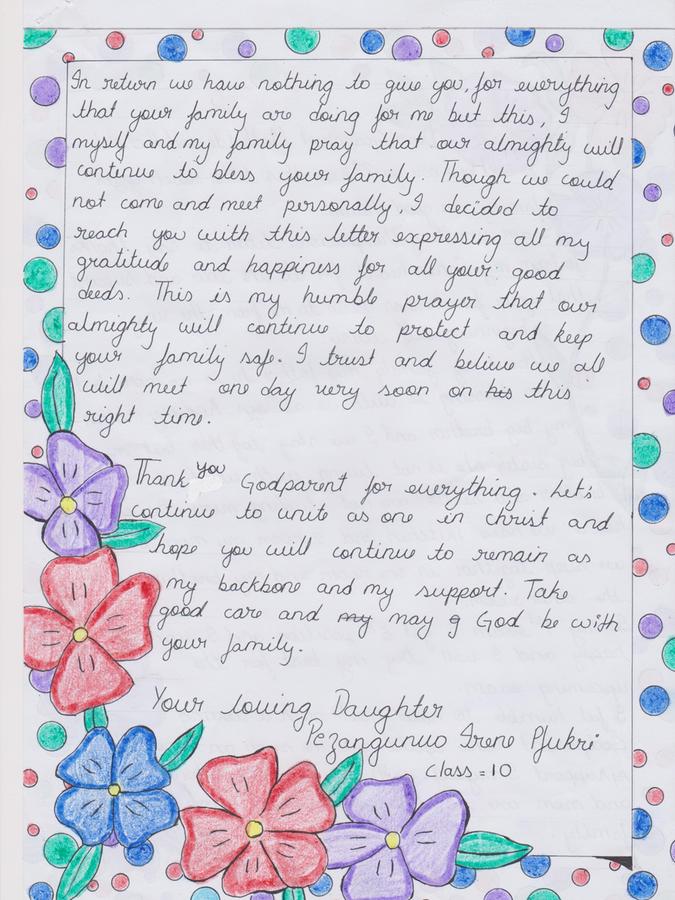 In return we have nothing to give you, for everything
that your family are doing for me but this, I
myself and my family pray that our almighty will
continue to bless your family. Though we could
not come and meet personally, I decided to
reach you with this letter expressing all my
gratitude and happiness for all your good
deeds. This is my humble prayer that our
almighty will continue to protect and keep
your family safe. I trust and believe we all
will meet one day very soon on his this
right time.
Thank you Godparent for everything. Let's
continue to unite as one in christ and
hope you will continue to remain as
my backbone and my support. Take
good care and my may g God be with
your family.
Your loving Daughter
Pezangunuo Irene Pfukri
Class = 10